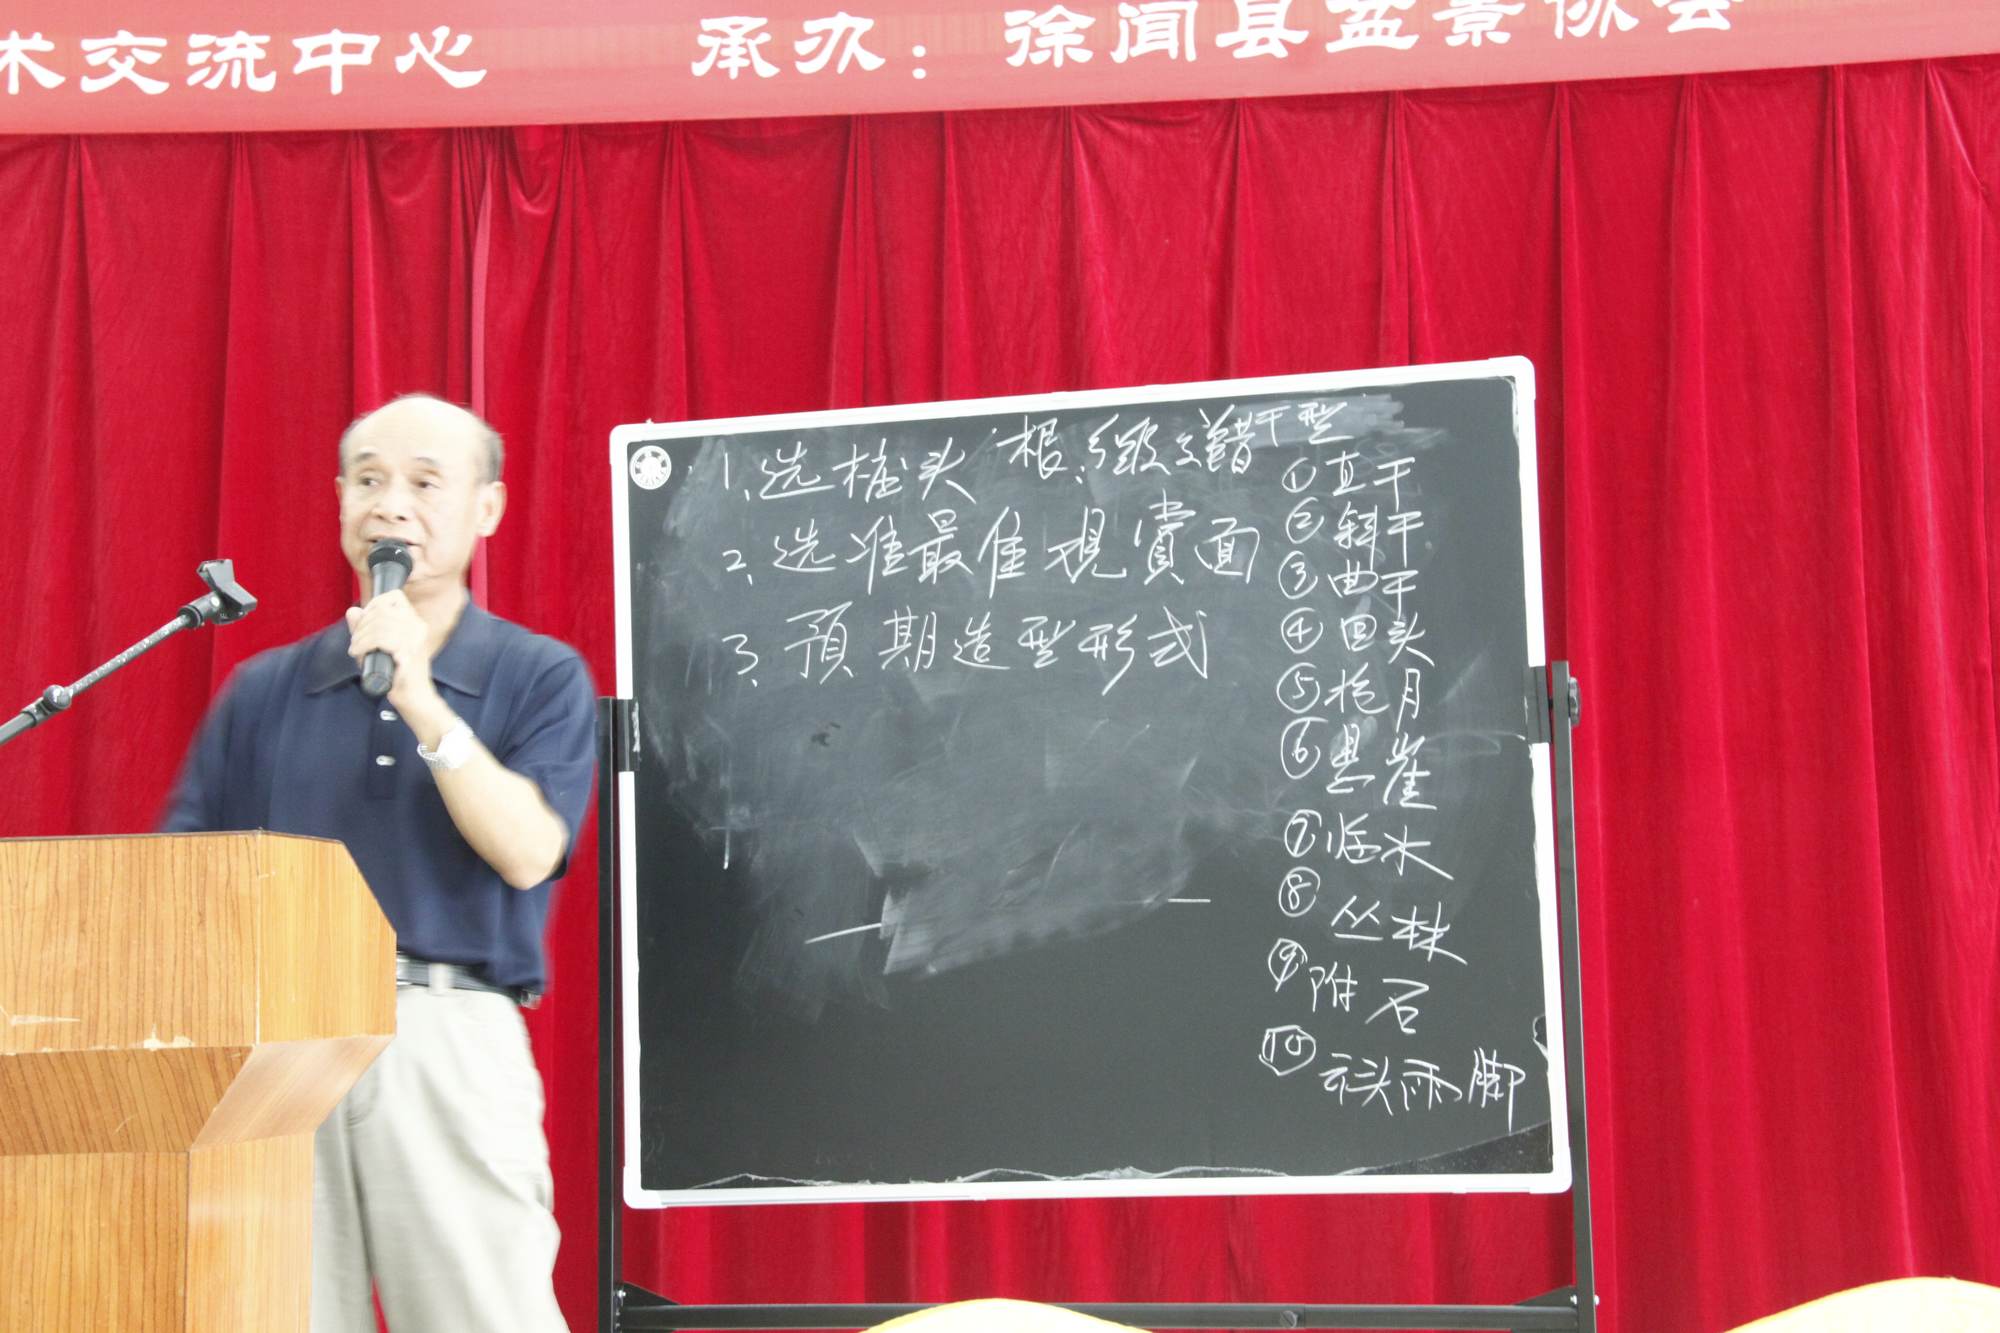 术交流中心 承办：徐闻县盆景协会
1、选桩头 根、 干型
2、选准最佳观赏面
3、预期造型形式
①直干
②斜干
③曲干
④回头
⑤抱月
⑥悬崖
⑦临水
⑧丛林
⑨附石
⑩云头雨脚